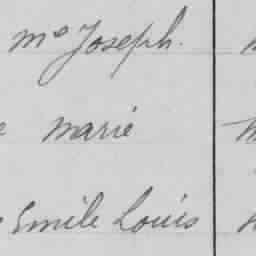 Mᵉ Joseph.
Marie
Emile Louis